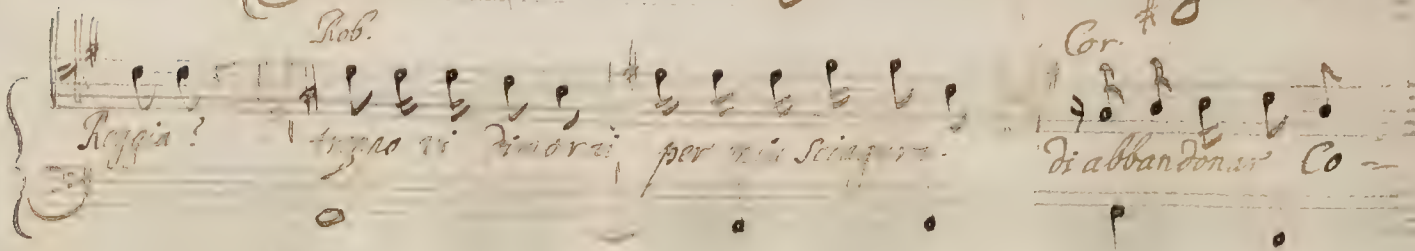 Rob. Cor.
Reggia? vi dimorai per mia sciagura. Di abbandonar Co-